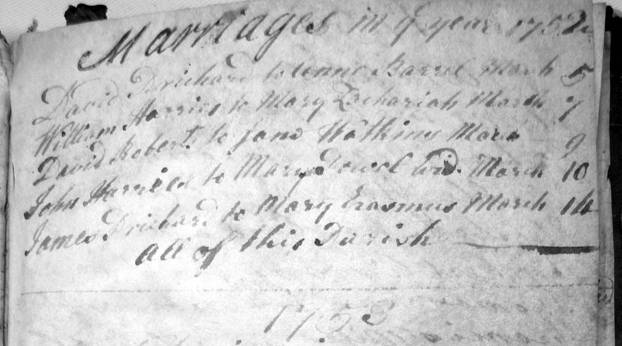 Marriages in ye year 1752
David Prichard to Anne Barrel March 5
William Harries to Mary Zechariah March 7
David Robert to Jane Watkins March 9
John Harries to Mary Powel Wid. March 10
James Prichard to Mary Erasmus March 14
all of this Parish
1753